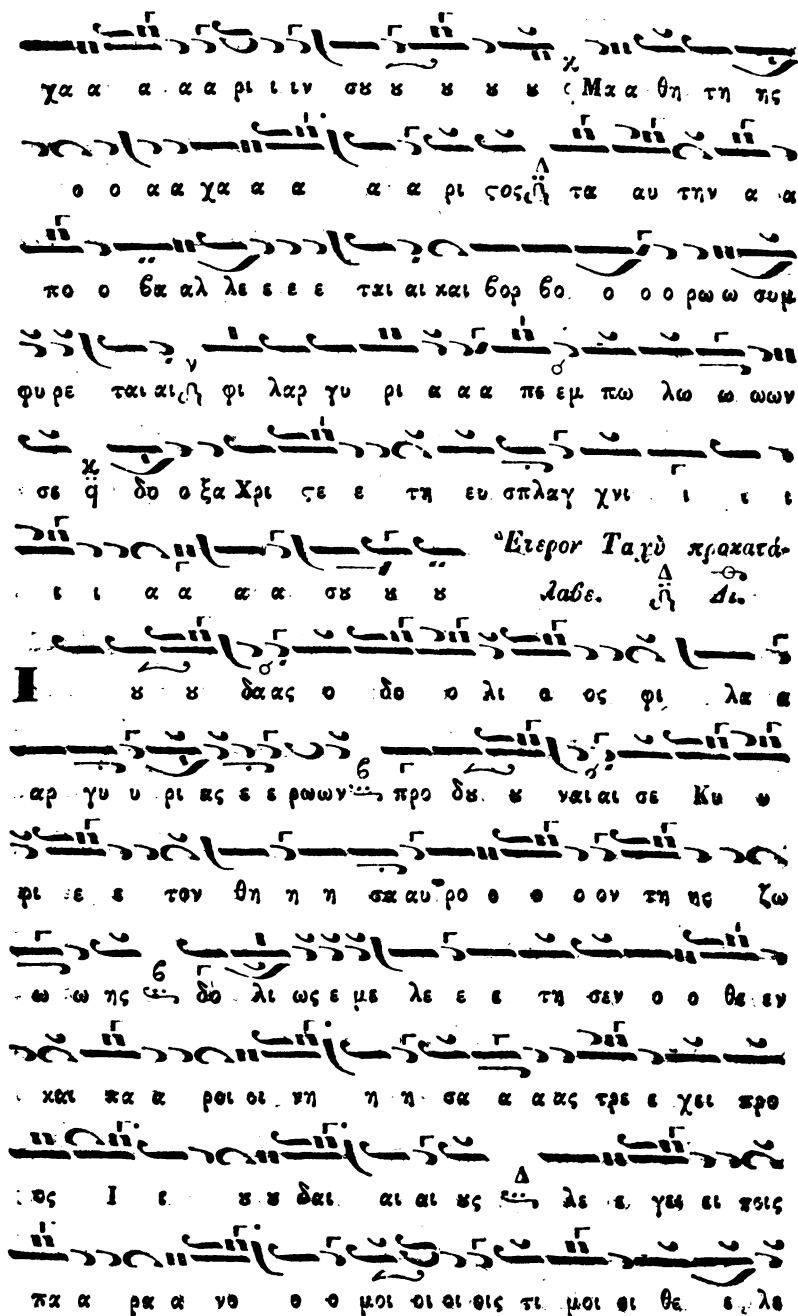 χα α α α α ρι ι ιν σȣ ȣ ȣ ȣ ȣ ȣ Μα α θη τη ης
ο ο α α χα α α α α ρι ϛος Δ τα αυ την α α
πο ο ϐα αλ λε ε ε ε ται αι και ϐορ ϐο ο ο ο ρω ω συμ
φυ ρε ται αι ν φι λαρ γυ ρι α α α πε εμ πω λω ω ωων
σε κ q δο ο ξα Χρι ϛε ε τη ευ σπλαγ χνι ι ι ι
ι ι α α α α σȣ ȣ ȣ Ἕτερον Ταχὺ προκατά-
λαϐε. Δ Δι.
Ι ȣ ȣ δα ας ο δο ο λι ο ος φι λα α
αρ γυ υ ρι ας ε ε ρωων ϐ προ δȣ ȣ ναι αι σε Κυ υ
ρι ε ε τον θη η η σα αυ ρο ο ο ο ον τη ης ζω
ω ω ης ϐ δο λι ως ε με λε ε ε τη σεν ο ο θε εν
και πα α ροι οι νη η η σα α α ας τρε ε χει προ
ος Ι ι ȣ ȣ δαι αι αι ȣς Δ λε ε γει ει τοις
πα α ρα α νο ο ο μοι οι οι οις τι μοι οι θε ε λε